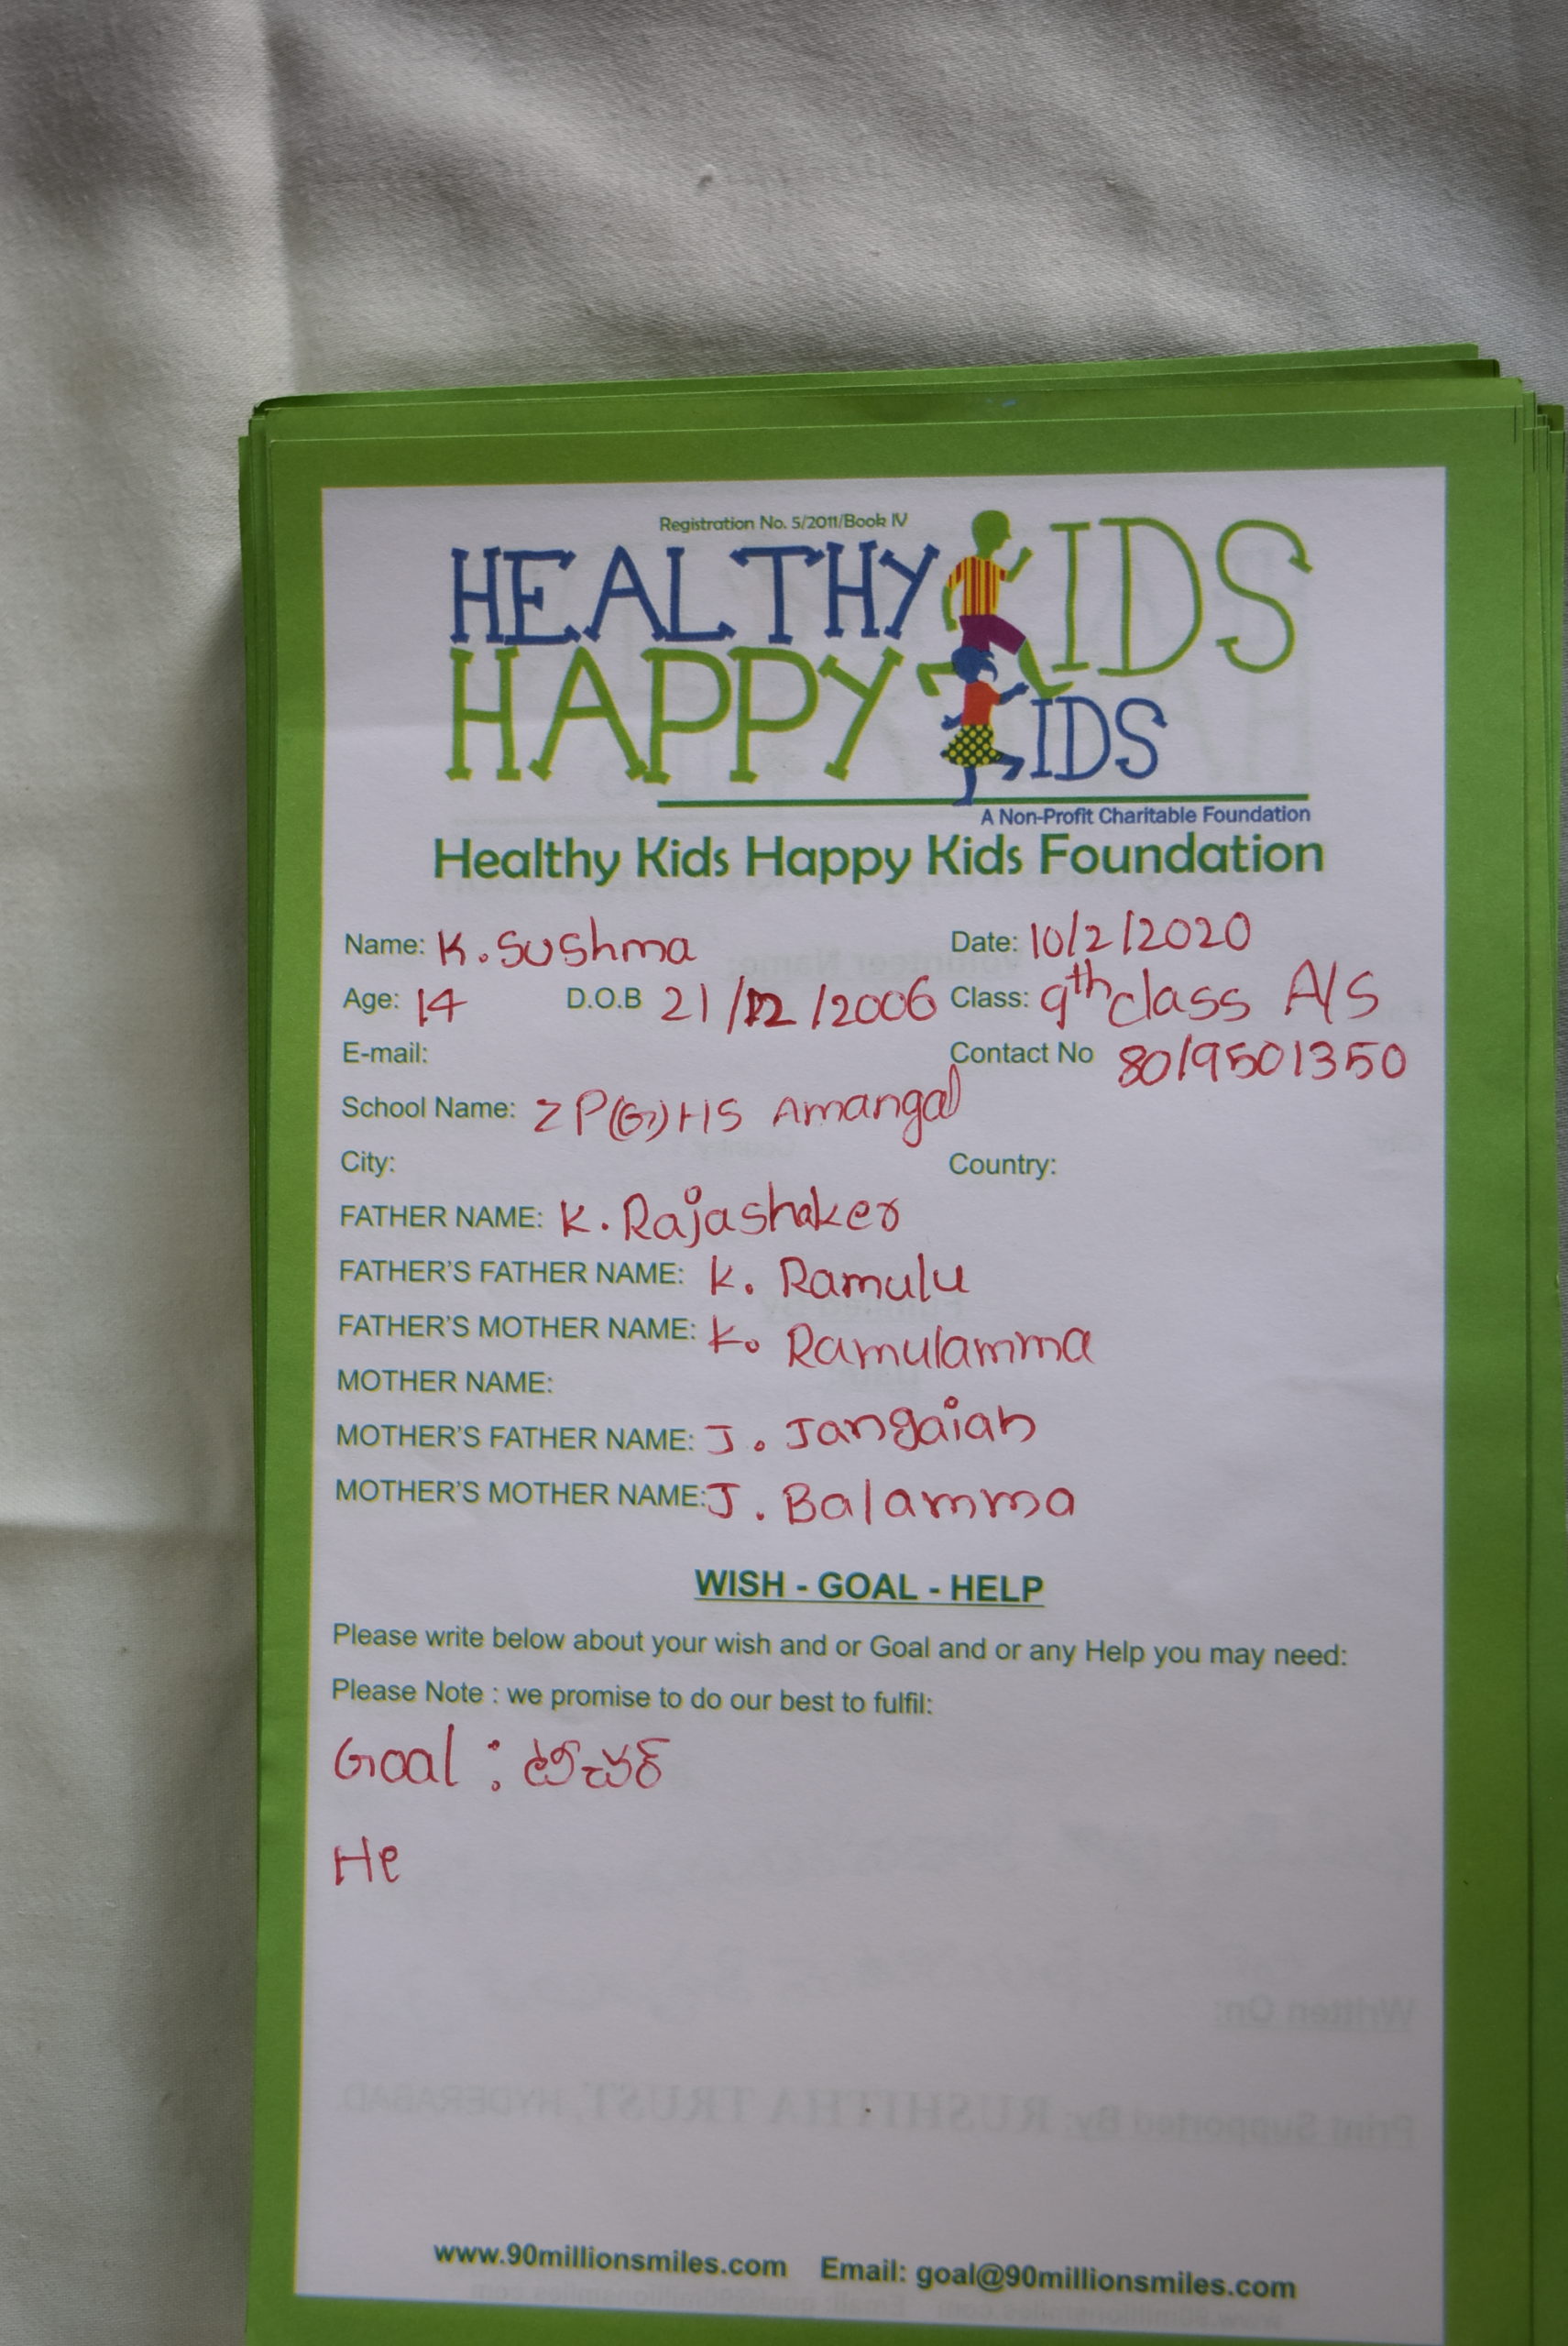 Registration No. 5/2011/Book IV
HEALTHY KIDS
HAPPY KIDS
A Non-Profit Charitable Foundation
Healthy Kids Happy Kids Foundation
Name: K. Sushma Date: 10/2/2020
Age: 14 D.O.B 21/12/2006 Class: 9th class A/S
E-mail: Contact No 8019501350
School Name: ZP(G)HS Amangal
City: Country:
FATHER NAME: K. Rajashaker
FATHER'S FATHER NAME: K. Ramulu
FATHER'S MOTHER NAME: K. Ramulamma
MOTHER NAME:
MOTHER'S FATHER NAME: J. Jangaiah
MOTHER'S MOTHER NAME: J. Balamma
WISH - GOAL - HELP
Please write below about your wish and or Goal and or any Help you may need:
Please Note : we promise to do our best to fulfil:
Goal : టీచర్
He
Written On:
Print Supported By: RUSHITHA TRUST, HYDERABAD
www.90millionsmiles.com Email: goal@90millionsmiles.com